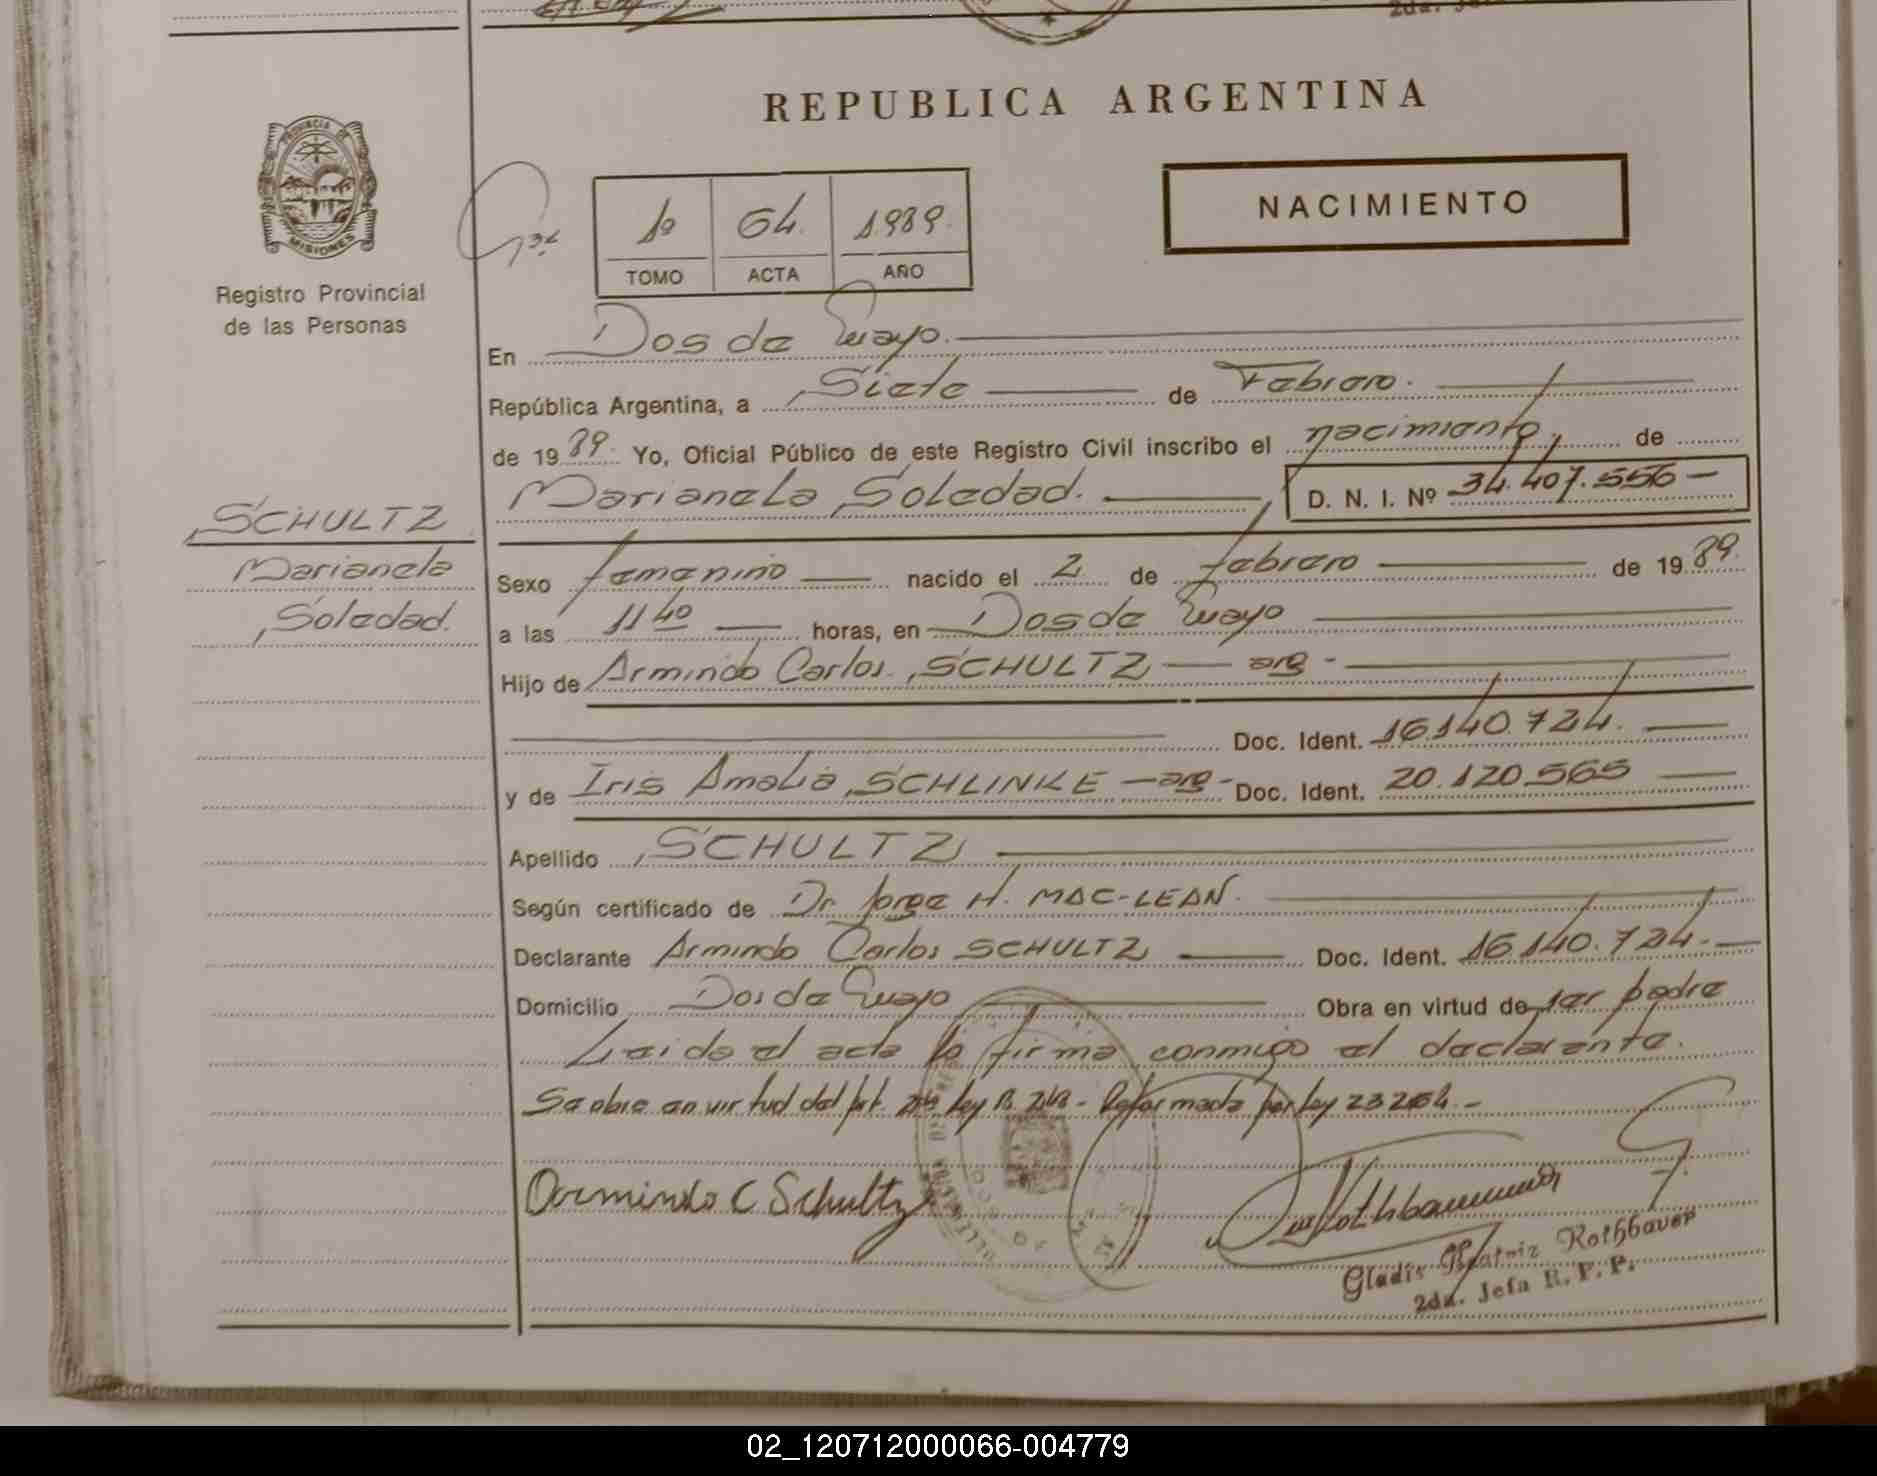 2da. Jefa
REPUBLICA ARGENTINA
PROVINCIA DE
MISIONES
Registro Provincial
de las Personas
1º 64. 1989.
TOMO ACTA AÑO
NACIMIENTO
En Dos de Mayo.
República Argentina, a Siete de Febrero.
de 1989. Yo, Oficial Público de este Registro Civil inscribo el nacimiento, de
Marianela Soledad. D. N. I. Nº 34.407.556
SCHULTZ
Marianela
Soledad.
Sexo femenino nacido el 2 de febrero de 1989.
a las 11 40 horas, en Dos de Mayo
Hijo de Armindo Carlos SCHULTZ arg
Doc. Ident. 16.140.724.
y de Iris Amalia SCHLINKE arg Doc. Ident. 20.120.565
Apellido SCHULTZ
Según certificado de Dr Jorge H. MAC-LEAN.
Declarante Armindo Carlos SCHULTZ Doc. Ident. 16.140.724.
Domicilio Dos de Mayo Obra en virtud de ser padre
Leida el acta la firma conmigo el declarante.
Se obra en virtud del Art. Ley Reformada por Ley 23264.
Armindo C Schultz
Gladis Beatriz Rothbauer
2da. Jefa R. P. P.
02_120712000066-004779